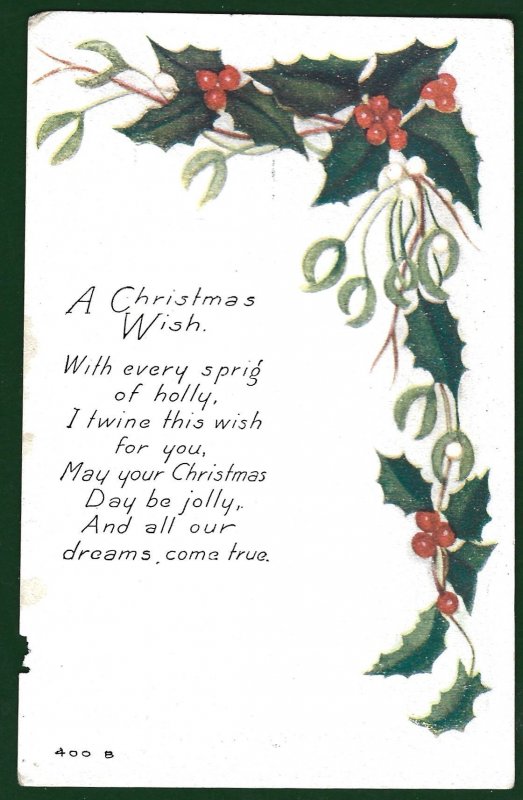 A Christmas
Wish.
With every sprig
of holly,
I twine this wish
for you,
May your Christmas
Day be jolly,.
And all our
dreams, come true.
400 B